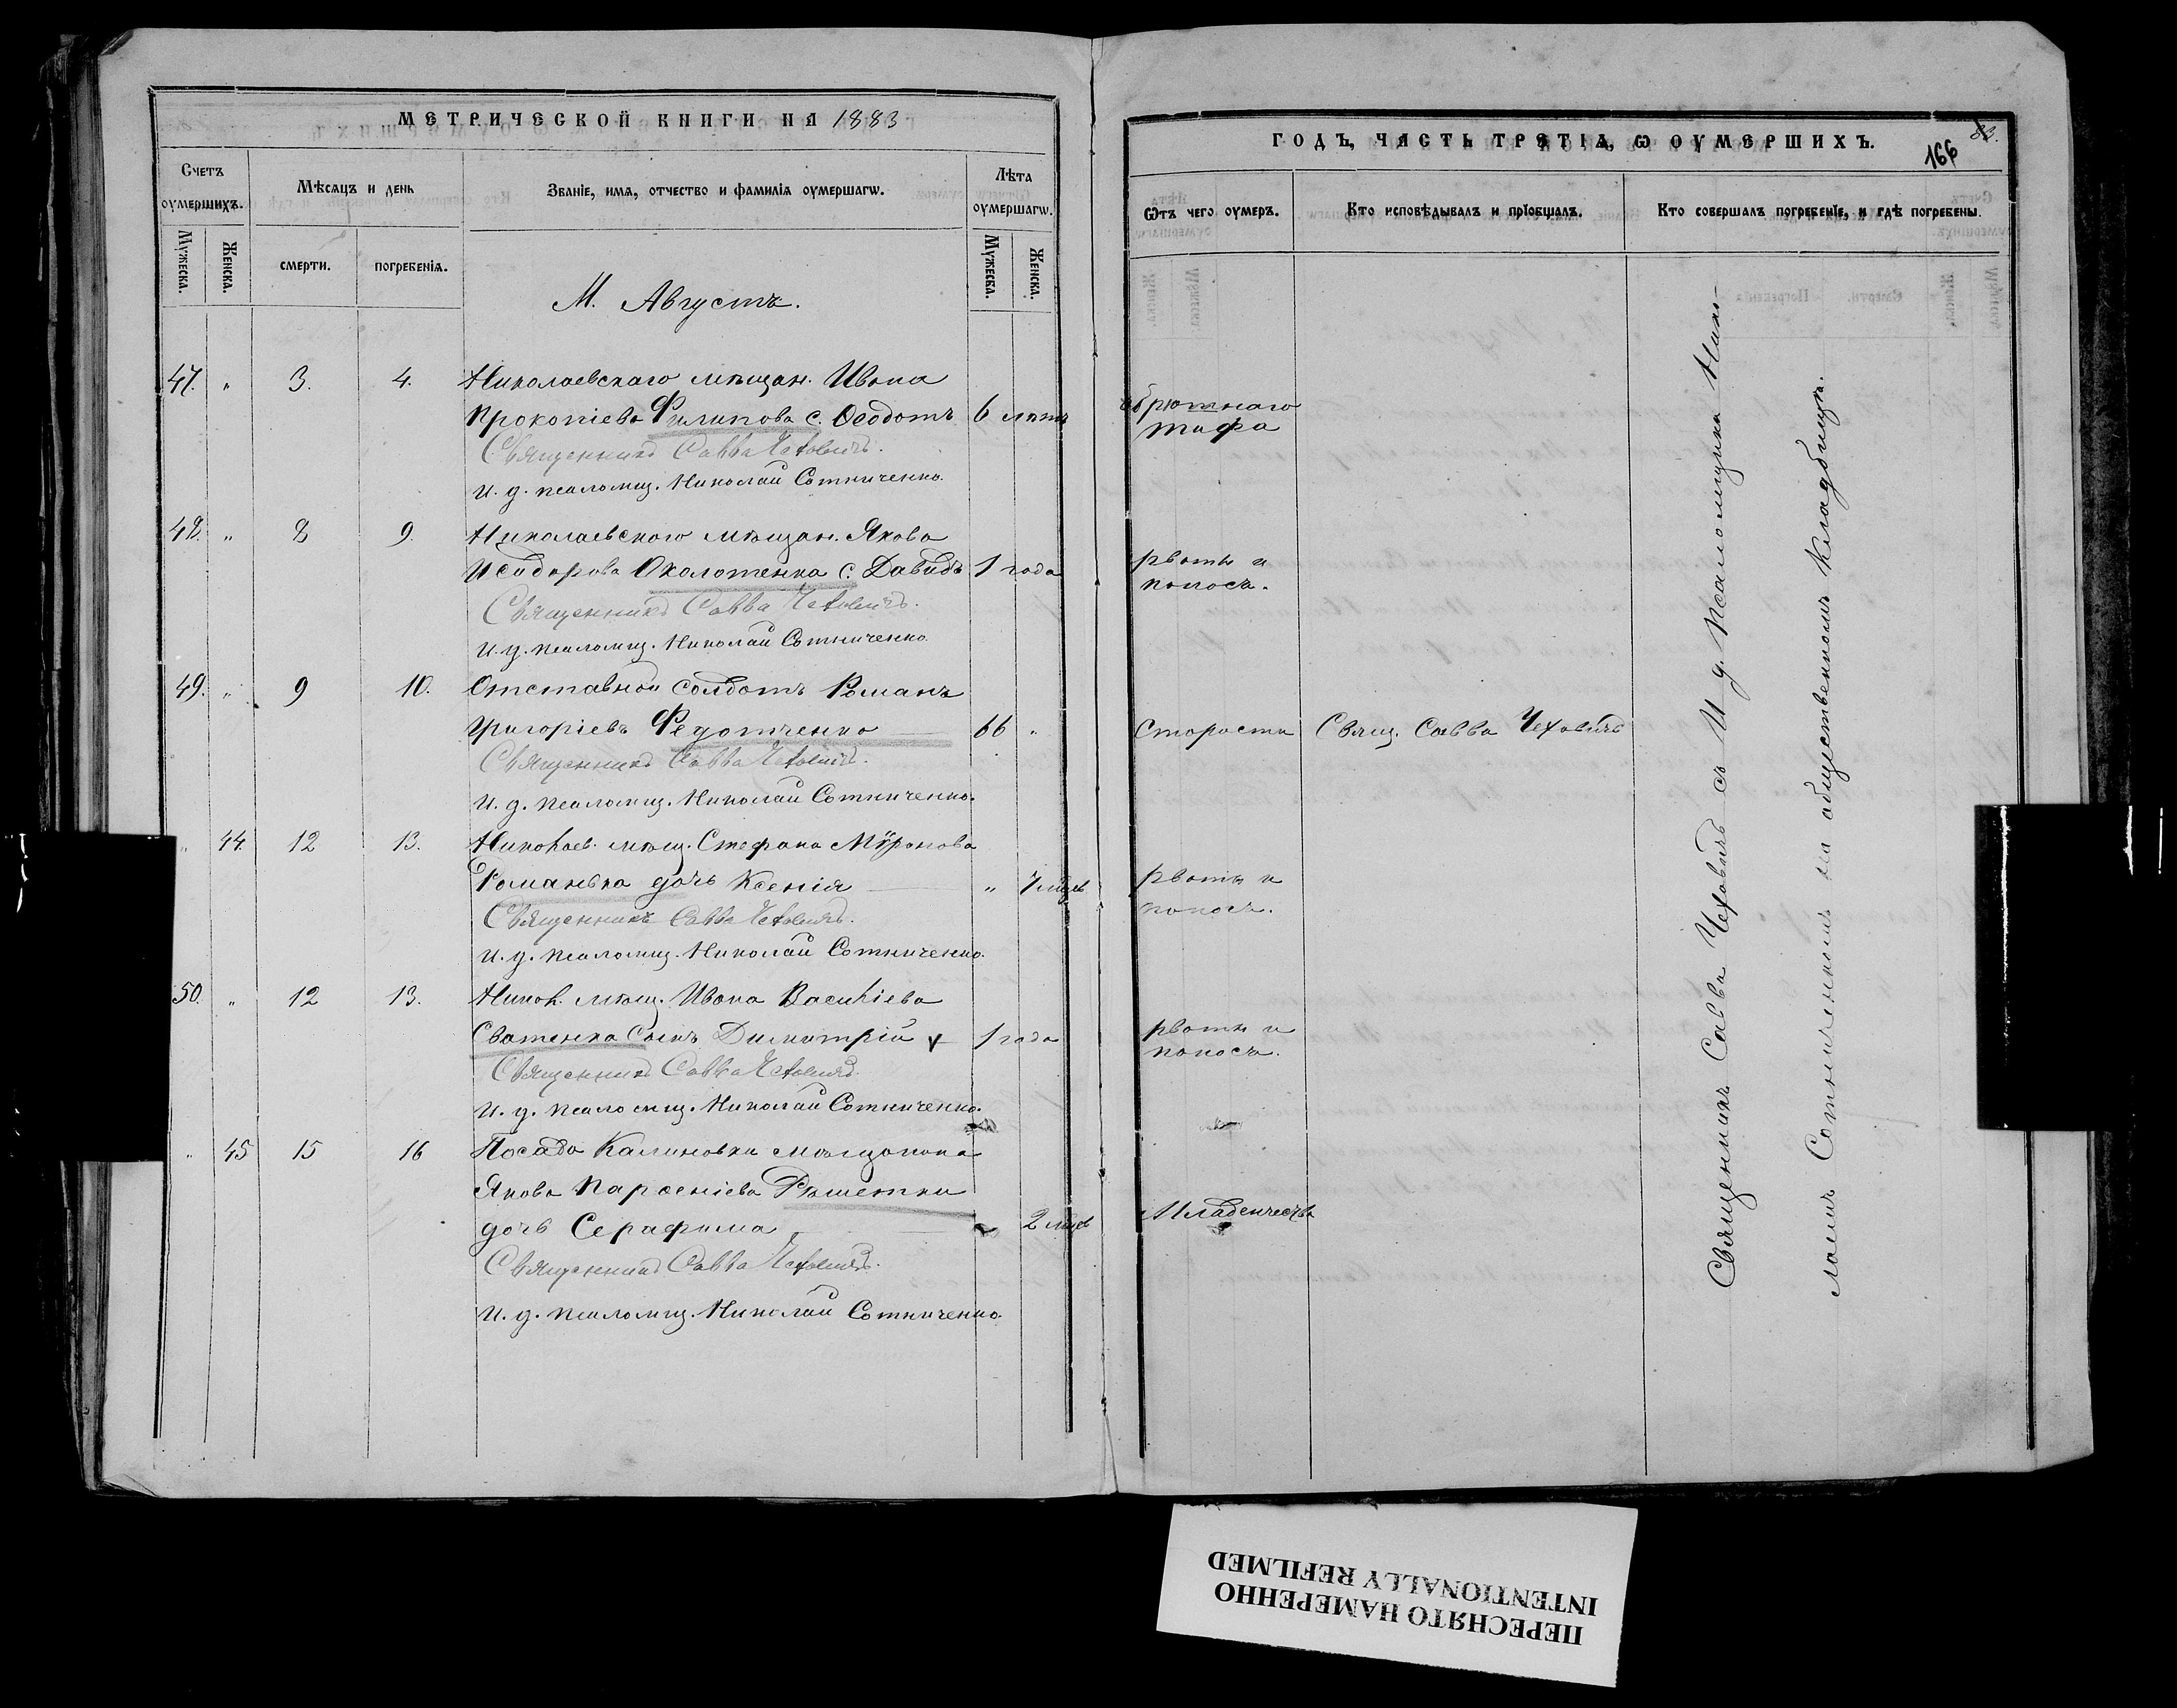 МЕТРИЧЕСКОЙ КНИГИ НА 1883
Счетъ оумершихъ.
Мѣсяцъ и день
Званіе, имя, отчество и фамилія оумершагѡ.
Лѣта оумершагѡ.
Мужеска.
Женска.
смерти.
погребенія.
Мужеска.
Женска.
М. Августъ.
47. " 3. 4. Николаевскаго мѣщан. Ивана
Прокопіева Филипова с. Ѳеодотъ 6 лѣтъ
Священникъ Савва Чеховичъ.
И. д. псаломщ. Николай Сотниченко.
48. " 8 9. Николаевского мѣщан. Якова
Исидорова Охолотенка с. Давидъ 1 года
Священникъ Савва Чеховичъ.
И. д. псаломщ. Николай Сотниченко.
49. " 9 10. Отставной солдатъ Романъ
Григоріевъ Федотченко 66 "
Священникъ Савва Чеховичъ.
И. д. псаломщ. Николай Сотниченко.
" 44. 12 13. Николаев. мѣщ. Стефана Мѵронова
Романька дочь Ксенія " 7 мѣцъ
Священникъ Савва Чеховичъ.
И. д. псаломщ. Николай Сотниченко.
50. " 12 13. Никол. мѣщ. Ивана Василіева
Сватенка сынъ Димитрій 1 года
Священникъ Савва Чеховичъ.
И. д. псаломщ. Николай Сотниченко.
" 45 15 16 Посада Калиновки мѣщанина
Якова Парѳеніева Рѣшетки
дочь Серафима 2 мѣцъ
Священникъ Савва Чеховичъ.
И. д. псаломщ. Николай Сотниченко.
ГОДЪ, ЧАСТЬ ТРЕТІЯ, Ѡ ОУМЕРШИХЪ.
166
83.
Ѿтъ чего оумеръ.
Кто исповѣдывалъ и пріобщалъ.
Кто совершалъ погребеніе, и гдѣ погребены.
тифа
рвоты и
поноса.
Старости Свящ. Савва Чеховичъ
рвоты и
поноса.
рвоты и
поноса.
Младенчества
Священникъ Савва Чеховичъ съ И. д. Псаломщика Нико-
лаемъ Сотниченкомъ на общественномъ кладбищѣ.
ПЕРЕСНЯТО НАМЕРЕННО
INTENTIONALLY REFILMED